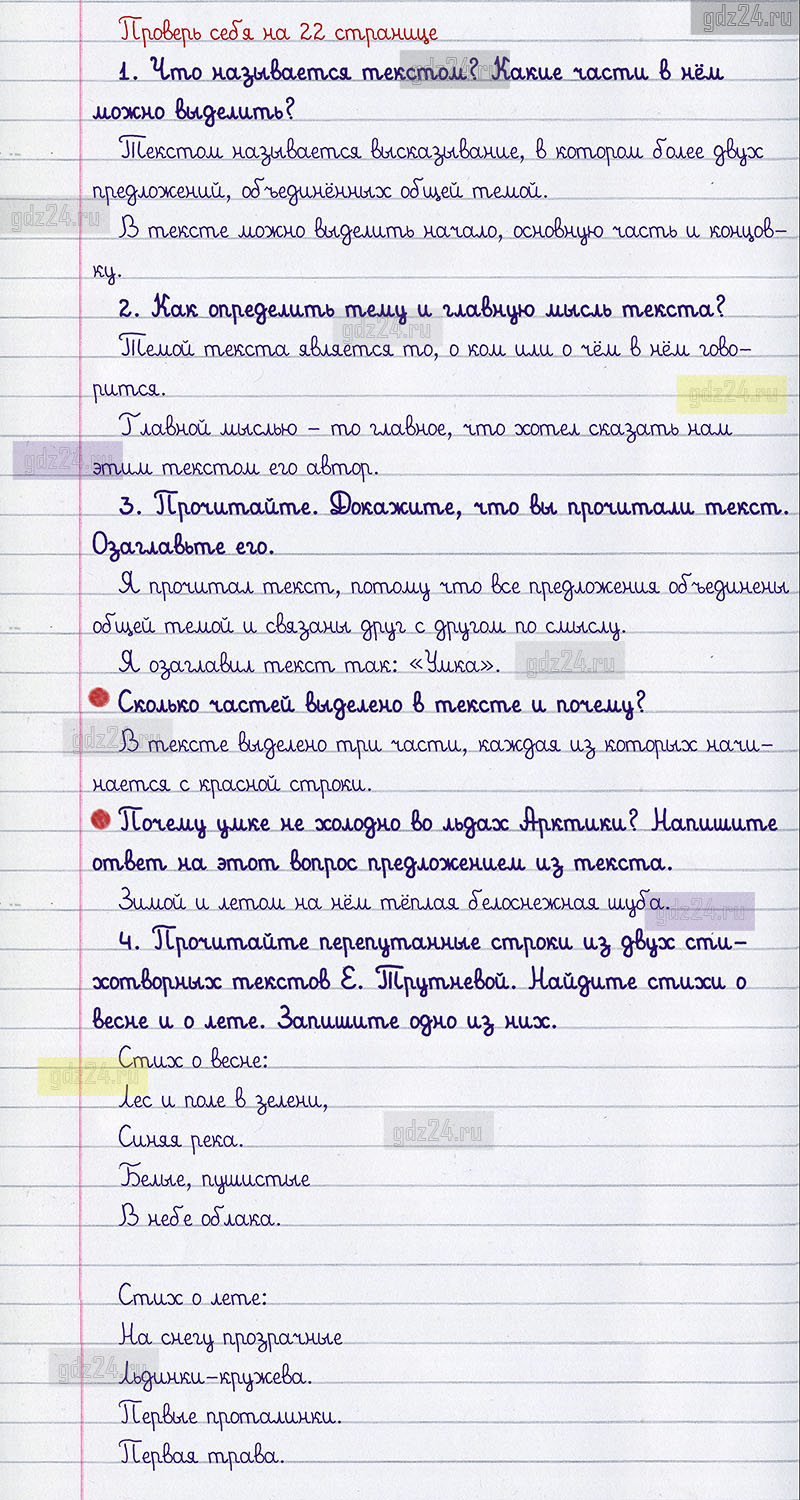 gdz24.ru
Проверь себя на 22 странице
1. Что называется текстом? Какие части в нём
gdz24.ru
можно выделить?
Текстом называется высказывание, в котором более двух
предложений, объединённых общей темой.
gdz24.ru
В тексте можно выделить начало, основную часть и концов-
ку.
2. Как определить тему и главную мысль текста?
gdz24.ru
Темой текста является то, о ком или о чём в нём гово-
рится.
gdz24.ru
Главной мыслью – то главное, что хотел сказать нам
gdz24.ru
этим текстом его автор.
3. Прочитайте. Докажите, что вы прочитали текст.
Озаглавьте его.
Я прочитал текст, потому что все предложения объединены
общей темой и связаны друг с другом по смыслу.
Я озаглавил текст так: «Умка».
gdz24.ru
Сколько частей выделено в тексте и почему?
gdz24.ru
В тексте выделено три части, каждая из которых начи-
нается с красной строки.
Почему умке не холодно во льдах Арктики? Напишите
ответ на этот вопрос предложением из текста.
Зимой и летом на нём тёплая белоснежная шуба.
gdz24.ru
4. Прочитайте перепутанные строки из двух сти-
хотворных текстов Е. Трутневой. Найдите стихи о
весне и о лете. Запишите одно из них.
Стих о весне:
gdz24.ru
Лес и поле в зелени,
Синяя река.
gdz24.ru
Белые, пушистые
В небе облака.
Стих о лете:
На снегу прозрачные
gdz24.ru
Льдинки-кружева.
Первые проталинки.
Первая трава.